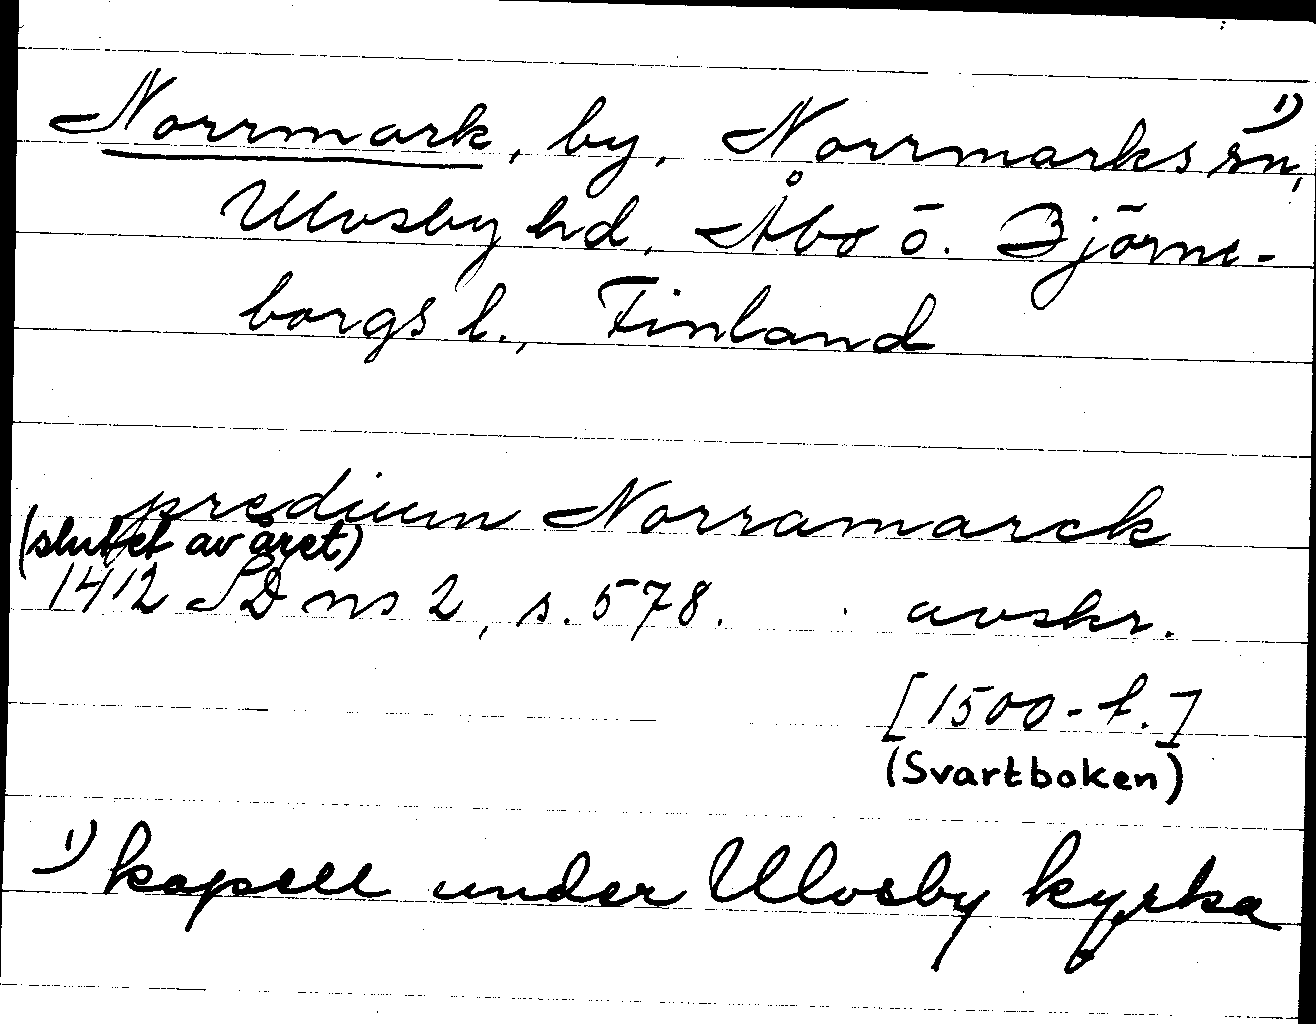 Norrmark, by, Norrmarks sn, 1)
Ulvsby hd, Åbo ö. Björne-
borgs l., Finland
predium Norramarck
(slutet av året)
1412 SD ns 2, s. 578. avskr.
[1500-t.]
(Svartboken)
1) kapell under Ulvsby kyrka